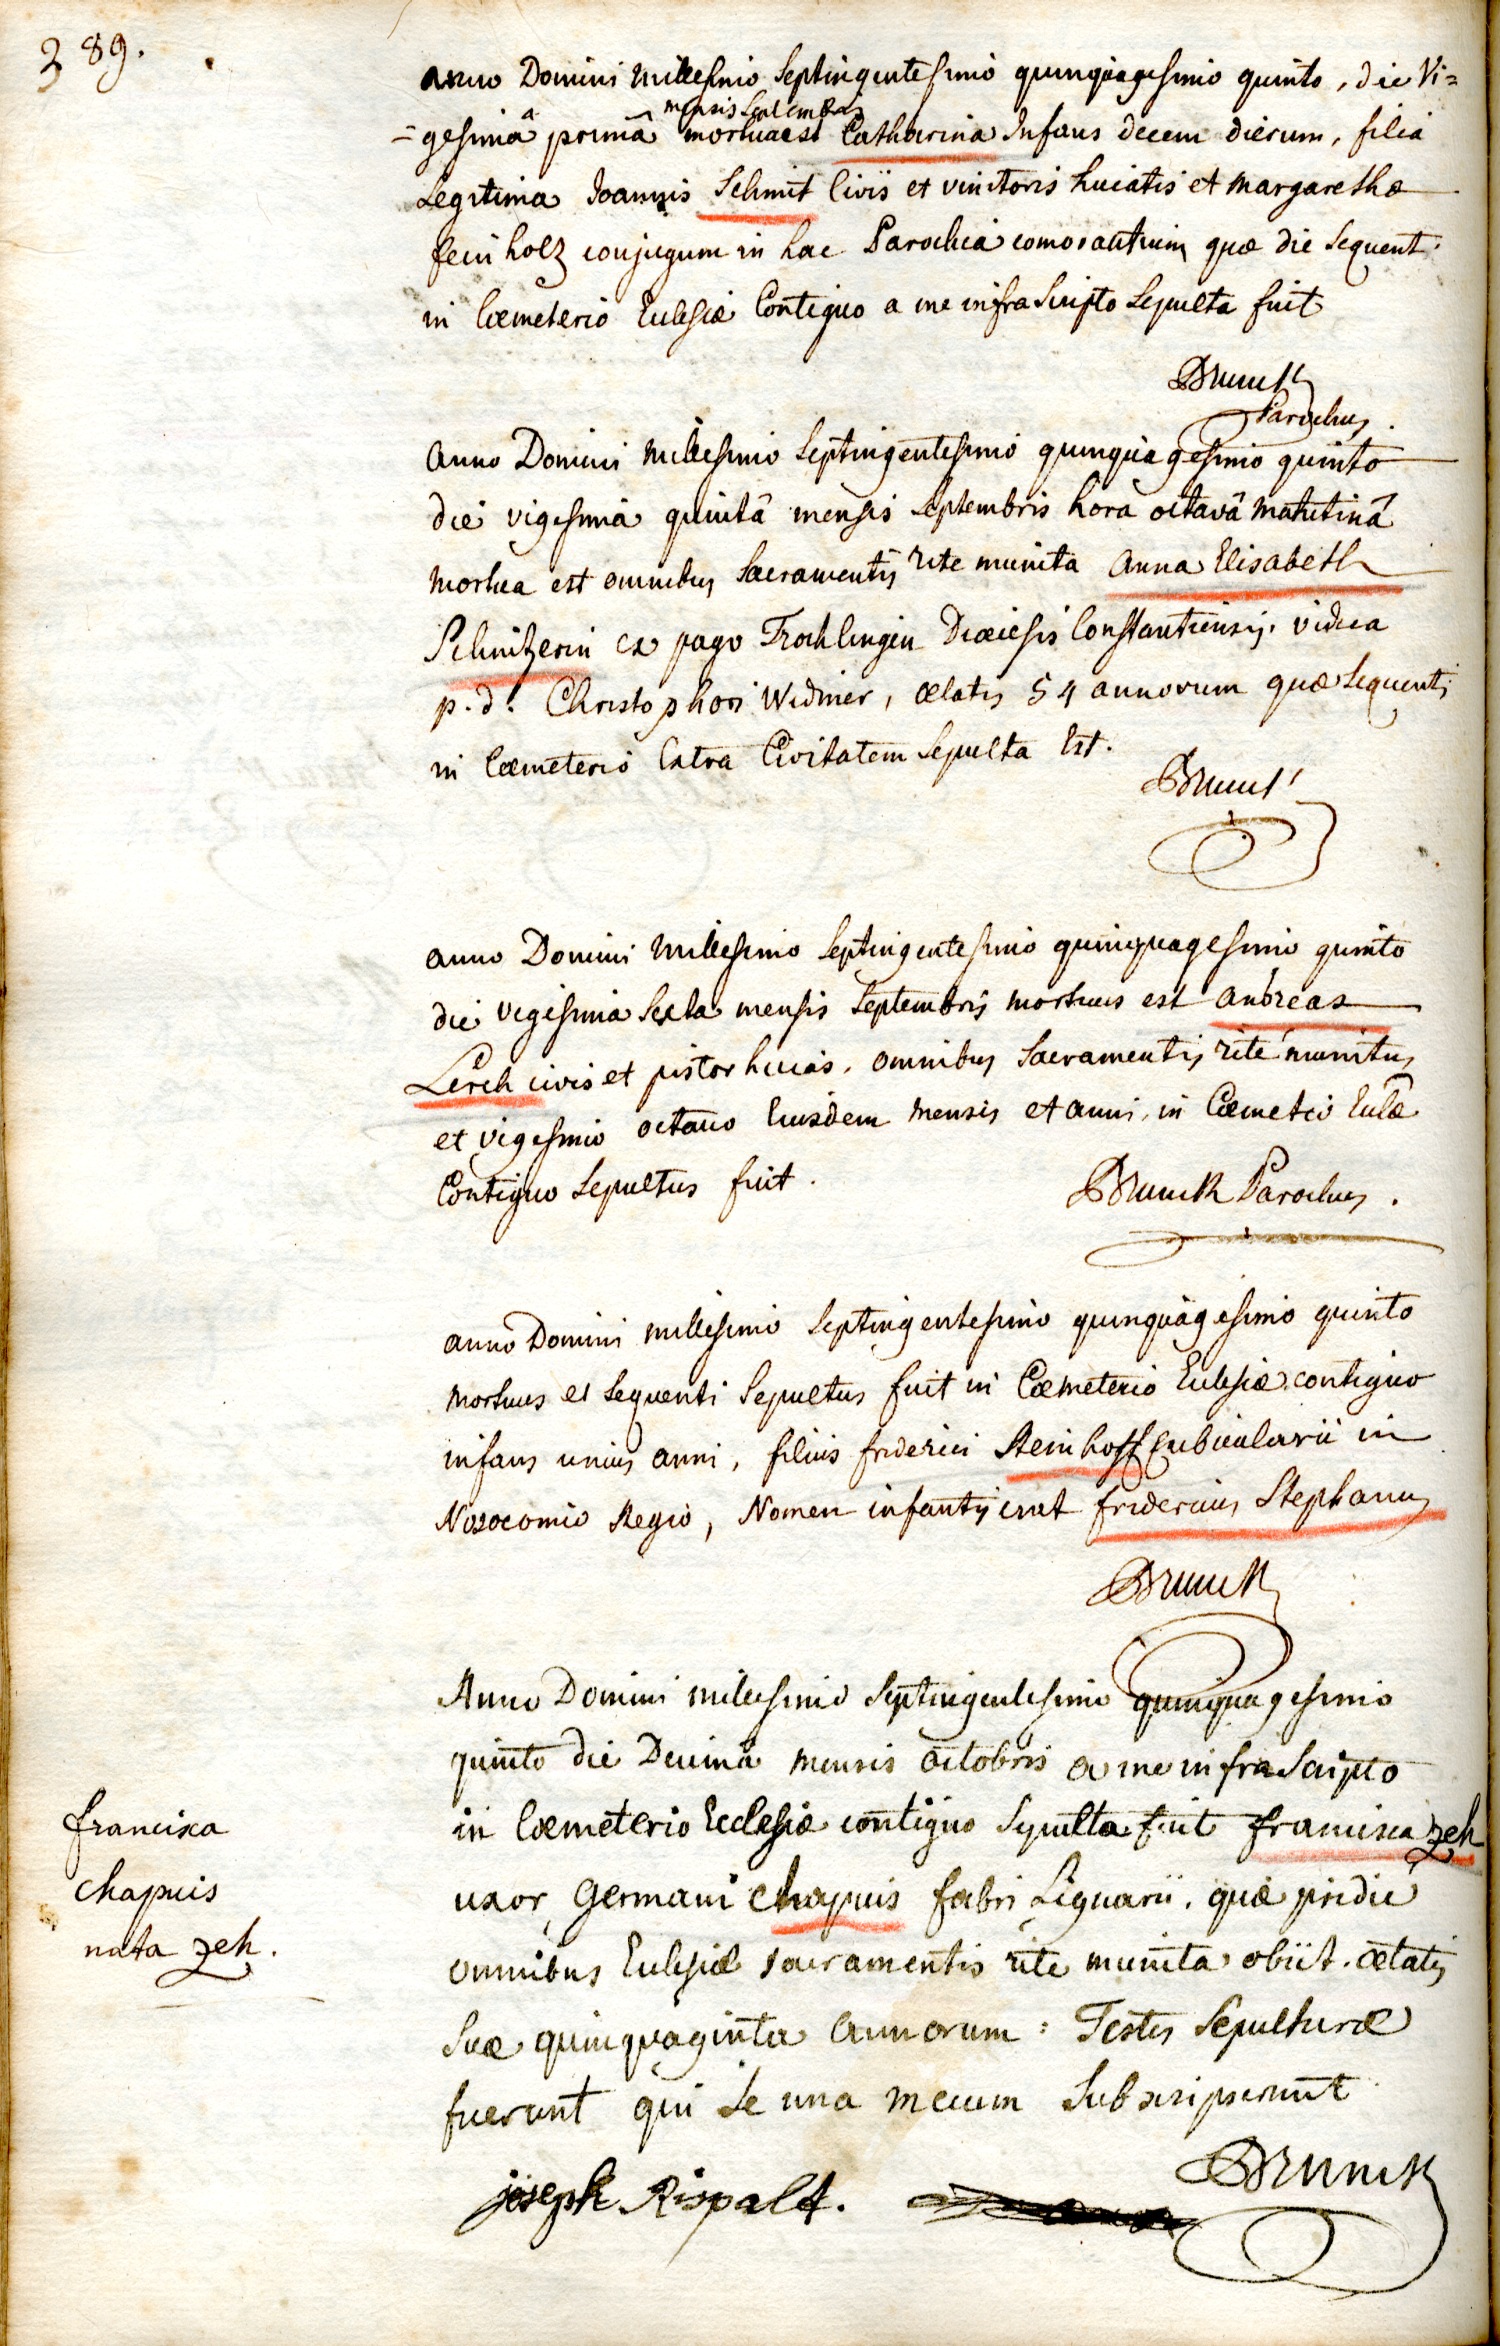 389.
anno Domini millesimo septingentesimo quinquagesimo quinto, die Vi=
mensis Septembris
=gesimâ primâ mortua est Catharina Infans decem dierum, filia
Legitima Joannis Schmit Civis et vinitoris huiatis et Margarethæ
feinholz conjugum in hac Parochia comorantium quæ die sequent.
in Cœmeterio Eclesiæ Contiguo a me infra Scripto Sepulta fuit
Brunck
Parochus.
anno Domini millesimo septingentesimo quinquagesimo quinto
die vigesima quintâ mensis septembris hora octavâ matutinâ
mortua est omnibus Sacramentis rite munita anna Elisabeth
Schnitzerin ex pago Trochlingen Diœcesis Constantiensis, vidua
p.d. Christophori Widmer, ætatis 54 annorum quæ sequenti
in Cœmeterio Extra Civitatem sepulta Est.
Brunck
anno Domini millesimo septingentesimo quinquagesimo quinto
die vigesima sexta mensis septembris mortuus est andreas
Lerch civis et pistor huias, omnibus Sacramentis rite munitus
et vigesimo octavo Eiusdem mensis et anni, in Cœmetio Eclæ
Contiguo sepultus fuit.
Brunck Parochus.
anno Domini millesimo septingentesimo quinquagesimo quinto
mortuus et sequenti sepultus fuit in Cœmeterio Eclesiæ contiguo
infans unius anni, filius friderici Steinhoff Cubicularii in
Nosocomio Regio, Nomen infantis erat fridericus Stephanus
Brunck
Anno Domini millesimo septingentesimo quinquagesimo
quinto die Decimâ mensis octobris a me infra Scripto
in Cœmeterio Ecclesiæ contiguo sepulta fuit francisca zeh
uxor Germani chapuis fabri Lignarii, quæ pridie
omnibus Eclesiæ sacramentis rite munita obiit. ætatis
suæ quinquaginta annorum: Testes sepulturæ
fuerunt qui se una mecum subscripserunt
joseph Rispalt.
Brunck
francisca
chapuis
nata zeh.